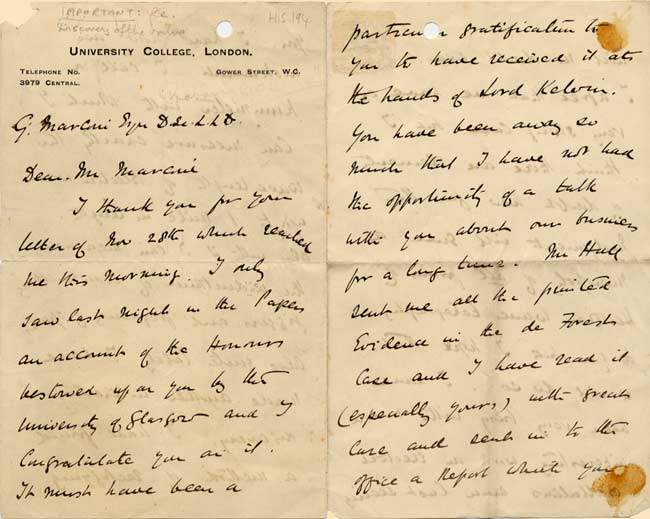 IMPORTANT: &c.
Discovery of the valve
HIS.194
UNIVERSITY COLLEGE, LONDON.
TELEPHONE NO.
3979 CENTRAL.
GOWER STREET, W.C.
G. Marconi Esqre D.Sc. LL.D.
Dear Mr Marconi
I thank you for your
letter of Nov 28th which reached
me this morning. I only
saw last night in the Papers
an account of the Honours
bestowed upon you by the
University of Glasgow and I
Congratulate you on it.
It must have been a
particular gratification to
you to have received it at
the hands of Lord Kelvin.
You have been away so
much that I have not had
the opportunity of a talk
with you about our business
for a long time. Mr Hall
sent me all the printed
Evidence in the de Forest
Case and I have read it
(especially yours) with great
Care and sent in to the
office a Report which you